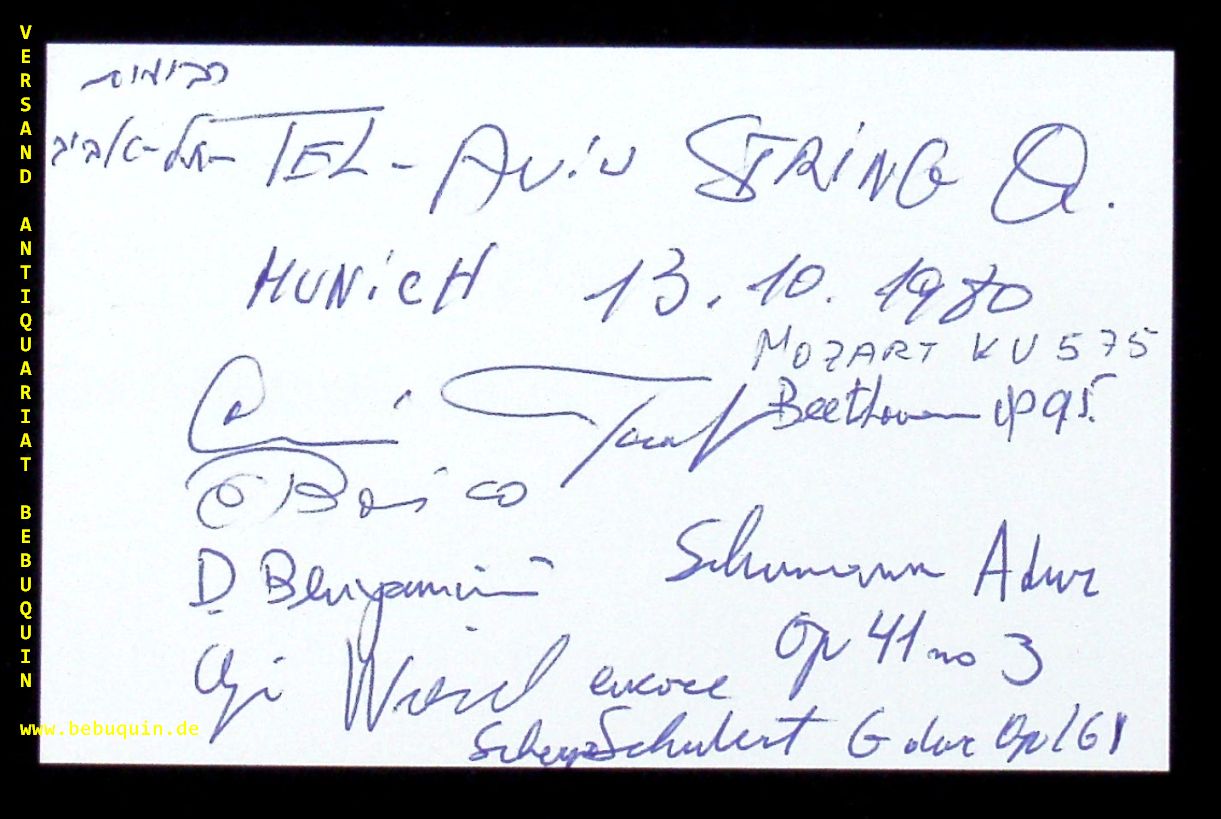 VERSAND ANTIQUARIAT BEBUQUIN
תל-אביב TEL-AViV STRiNG Q.
MUNiCH 13.10.1980
MOZART KV 575
Beethoven op 95
D Benyamini
Schumann A dur
Op 41 no 3
Uzi Wiesel encore
Scherzo Schubert G dur Op 161
www.bebuquin.de